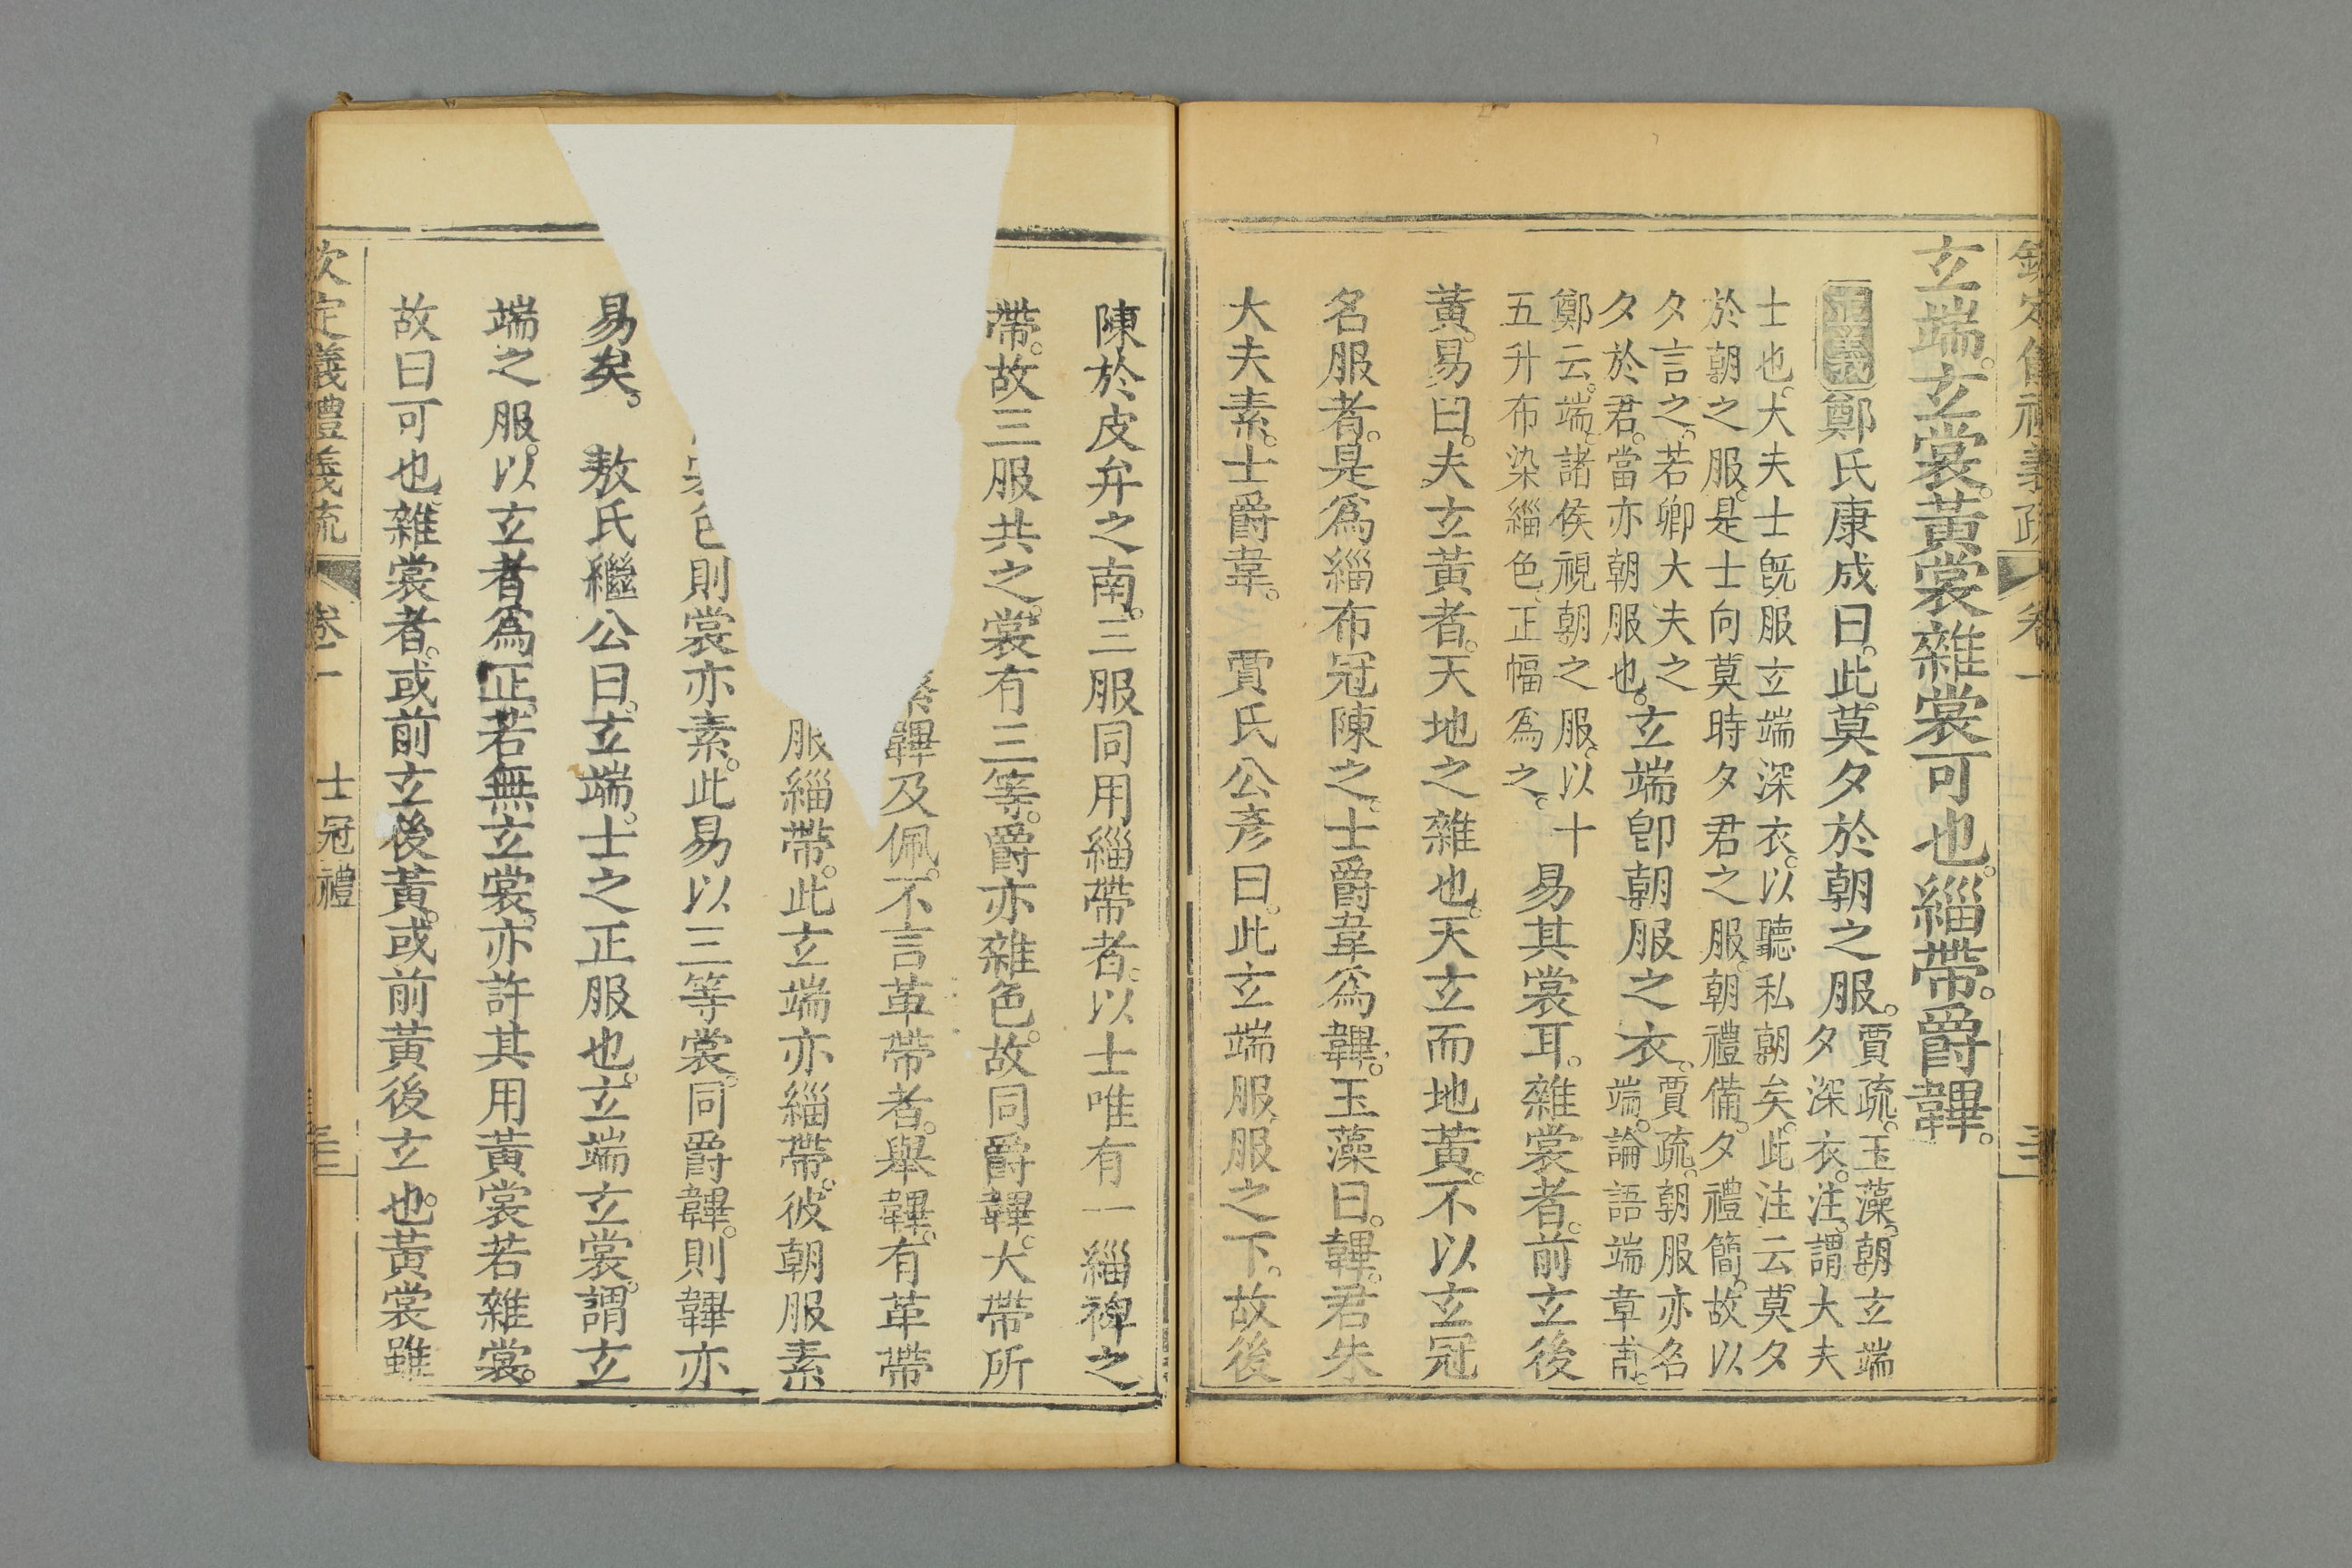 玄端。玄裳。黃裳雜裳可也。緇帶。爵韠。
正義鄭氏康成曰。此莫夕於朝之服。賈疏。玉藻。朝玄端
夕深衣。注。謂大夫
士也。大夫士旣服玄端深衣。以聽私朝矣。此注云。莫夕
於朝之服。是士向莫時夕君之服。朝禮備。夕禮簡。故以
夕言之。若卿大夫之
夕於君。當亦朝服也。玄端卽朝服之衣。賈疏。朝服亦名
端。論語端章甫。
鄭云。端。諸侯視朝之服。以十
五升布染緇色。正幅爲之。易其裳耳。雜裳者。前玄後
黃。易曰。夫玄黃者。天地之雜也。天玄而地黃。不以玄冠
名服者。是爲緇布冠陳之。士爵韋爲韠。玉藻曰。韠。君朱。
大夫素。士爵韋。 賈氏公彥曰。此玄端服。服之下。故後
陳於皮弁之南。三服同用緇帶者。以士唯有一緇裨之
帶。故三服共之。裳有三等。爵亦雜色。故同爵韠。大帶所
韠及佩。不言革帶者。舉韠。有革帶
服緇帶。此玄端亦緇帶。彼朝服素
則裳亦素。此易以三等裳。同爵韠。則韠亦
易矣。 敖氏繼公曰。玄端。士之正服也。玄端玄裳。謂玄
端之服。以玄者爲正。若無玄裳。亦許其用黃裳若雜裳。
故曰可也。雜裳者。或前玄後黃。或前黃後玄也。黃裳雖
欽定儀禮義疏 卷一 士冠禮